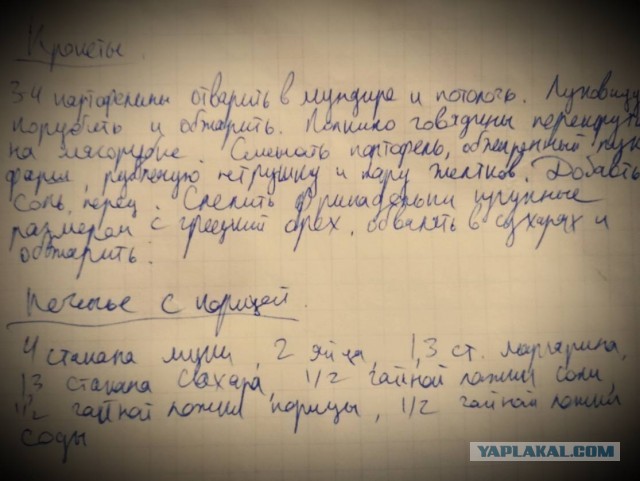 Крокеты.
3-4 картофелины отварить в мундире и потолочь. Луковицу
порубить и обжарить. Полкило говядины перекрутить
на мясорубке. Смешать картофель, обжаренный лук,
фарш, рубленую петрушку и пару желтков. Добавить
соль, перец. Слепить фрикадельки крупные
размером с грецкий орех, обвалять в сухарях и
обжарить.
Печенье с корицей.
4 стакана муки, 2 яйца, 1,3 ст. маргарина,
1,3 стакана сахара, 1/2 чайной ложки соли,
1/2 чайной ложки корицы, 1/2 чайной ложки
соды
YAPLAKAL.COM